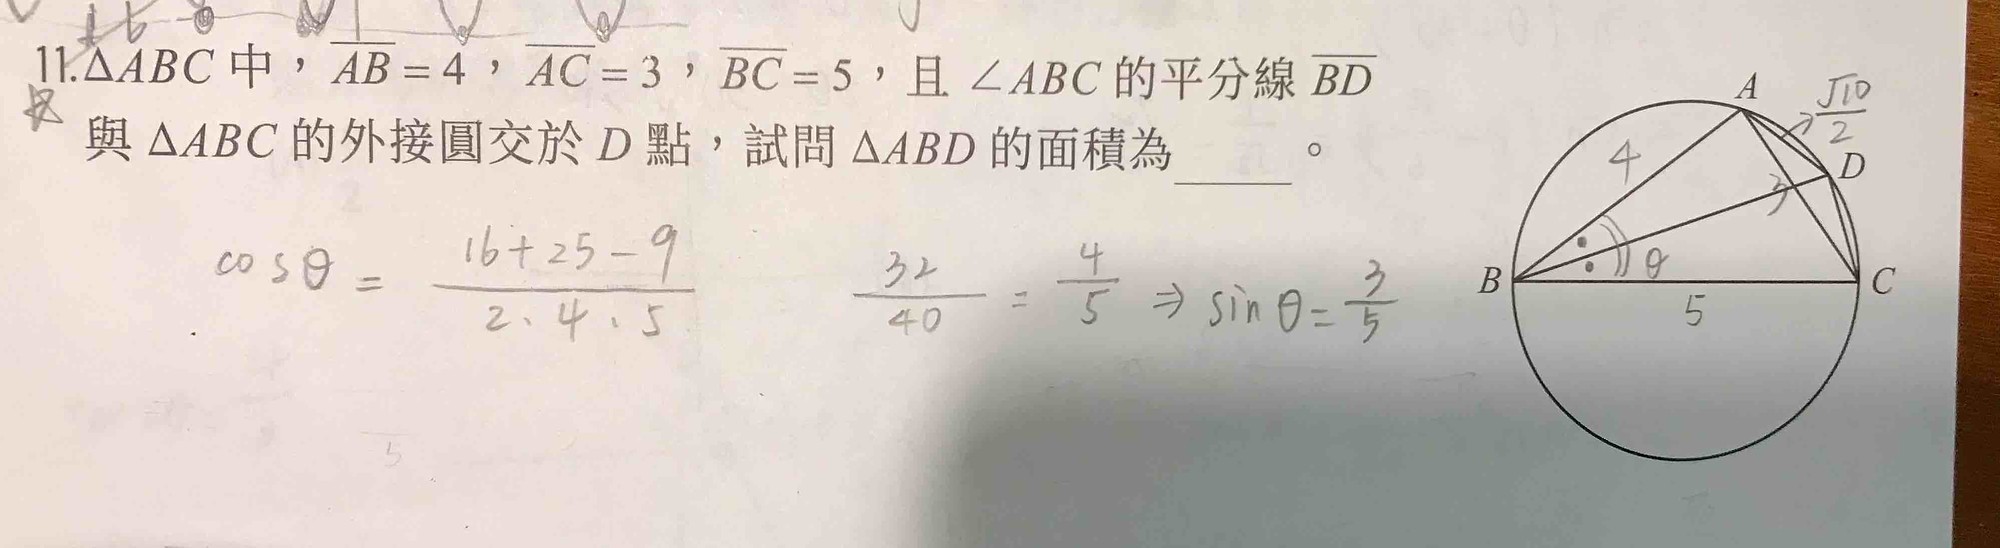 11.△ABC 中，AB = 4，AC = 3，BC = 5，且 ∠ABC 的平分線 BD
☆ 與 △ABC 的外接圓交於 D 點，試問 △ABD 的面積為____。
cosθ = (16+25-9)/(2·4·5) 32/40 = 4/5 ⇒ sinθ = 3/5
A
√10/2
4
D
3
B
θ
C
5
5